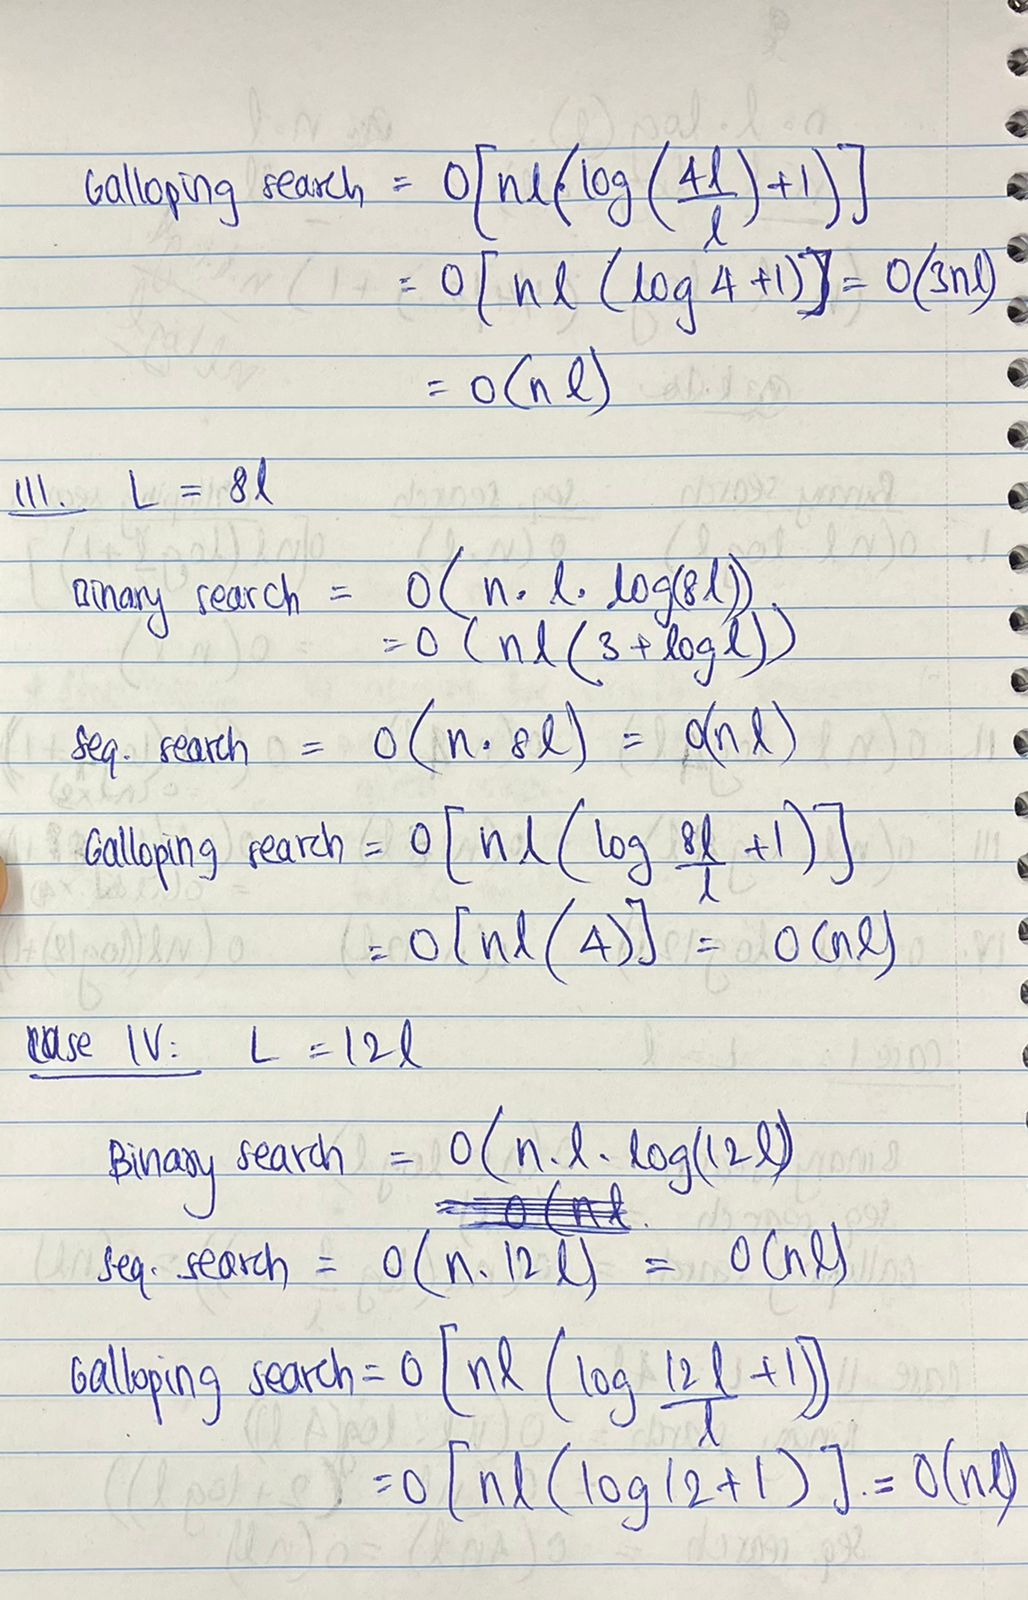 Galloping search = O[nl(log(4l/l)+1)]
= O[nl(log 4 +1)] = O(3nl)
= O(nl)
III. L = 8l
Binary search = O(n. l. log(8l)).
= O(nl(3+logl))
Seq. search = O(n. 8l) = O(nl)
Galloping search = O[nl(log 8l/l +1)]
= O[nl(4)] = O(nl)
Case IV: L = 12l
Binary search = O(n.l. log(12l)
= O(nl.
Seq. search = O(n. 12l) = O(nl)
Galloping search = O[nl(log 12l/l +1)]
= O[nl(log12+1)]. = O(nl)